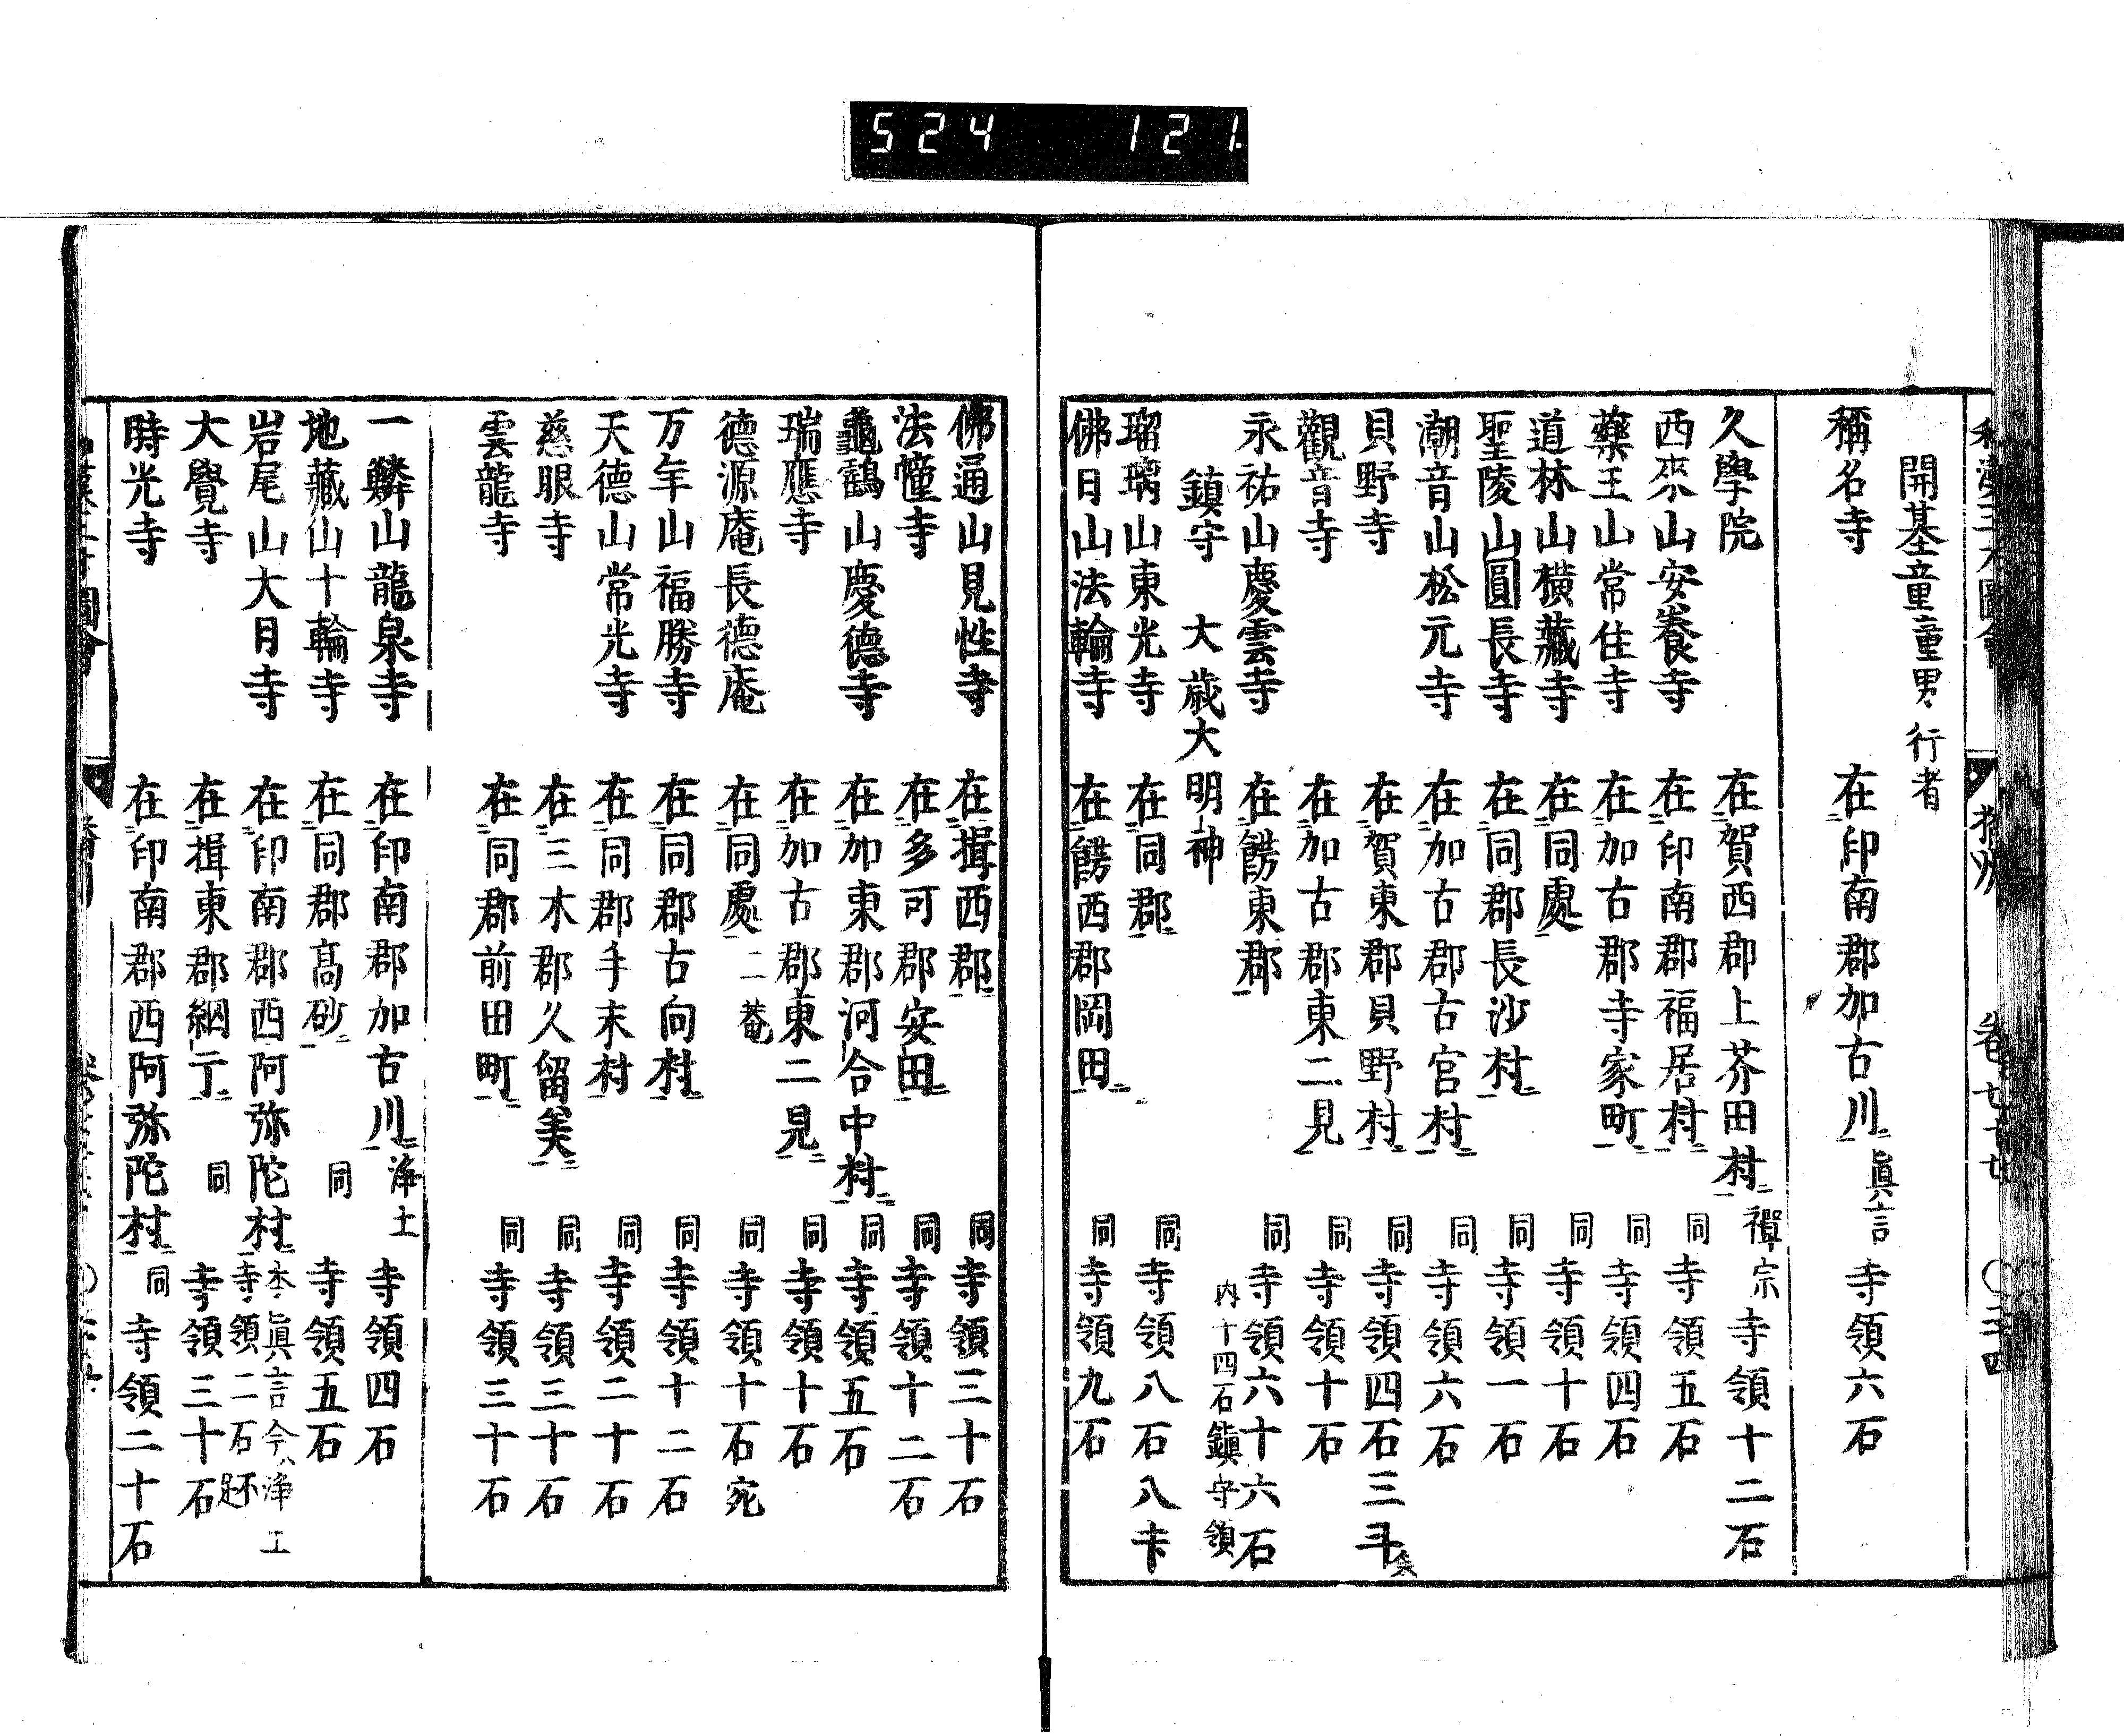 524 121
開基童童男行者
稱名寺 在印南郡加古川 眞言 寺領六石
久學院 在賀西郡上芥田村 禪宗 寺領十二石
西來山安養寺 在印南郡福居村 同 寺領五石
藥王山常住寺 在加古郡寺家町 同 寺領四石
道林山橫藏寺 在同處 同 寺領十石
聖陵山圓長寺 在同郡長沙村 同 寺領一石
潮音山松元寺 在加古郡古宮村 同 寺領六石
貝野寺 在賀東郡貝野村 同 寺領四石三斗
觀音寺 在加古郡東二見 同 寺領十石
永祐山慶雲寺 在餝東郡 同 寺領六十六石
鎮守 大歲大明神 内十四石鎮守領
瑠璃山東光寺 在同郡 同 寺領八石八斗
佛日山法輪寺 在餝西郡岡田 同 寺領九石
佛通山見性寺 在揖西郡 同 寺領三十石
法幢寺 在多可郡安田 同 寺領十二石
龜鶴山慶德寺 在加東郡河合中村 同 寺領五石
瑞應寺 在加古郡東二見 同 寺領十石
德源庵長德庵 在同處 二菴 同 寺領十石宛
万年山福勝寺 在同郡古向村 同 寺領十二石
天德山常光寺 在同郡手末村 同 寺領二十石
慈眼寺 在三木郡久留美 同 寺領三十石
雲龍寺 在同郡前田町 同 寺領三十石
一鱗山龍泉寺 在印南郡加古川 淨土 寺領四石
地藏山十輪寺 在同郡高砂 同 寺領五石
岩尾山大日寺 在印南郡西阿弥陀村 本眞言今淨土 寺領二石
大覺寺 在揖東郡網干 同 寺領三十石
時光寺 在印南郡西阿弥陀村 同 寺領二十石